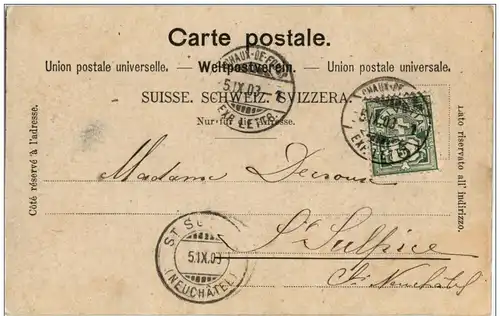 Carte postale.
Union postale universelle. — Weltpostverein. — Unione postale universale.
SUISSE. SCHWEIZ. SVIZZERA.
Nur für die Adresse.
Côté réservé à l'adresse.
Lato riservato all' indirizzo.
CHAUX-DE-FONDS
5.IX.03.-7
EXP. LETTR.
CHAUX-DE-
5.IX.03.-7
EXP. LET
5
Madame
St Sulpice
Ct. Neuchâtel
ST SU
5.IX.03
(NEUCHÂTEL)